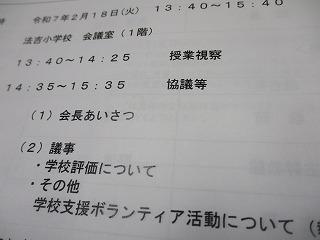 時 令和７年２月１８日（火） １３：４０～１５：４０
法吉小学校 会議室（１階）
１３：４０～１４：２５ 授業視察
１４：３５～１５：３５ 協議等
（１）会長あいさつ
（２）議事
・学校評価について
・その他
学校支援ボランティア活動について（